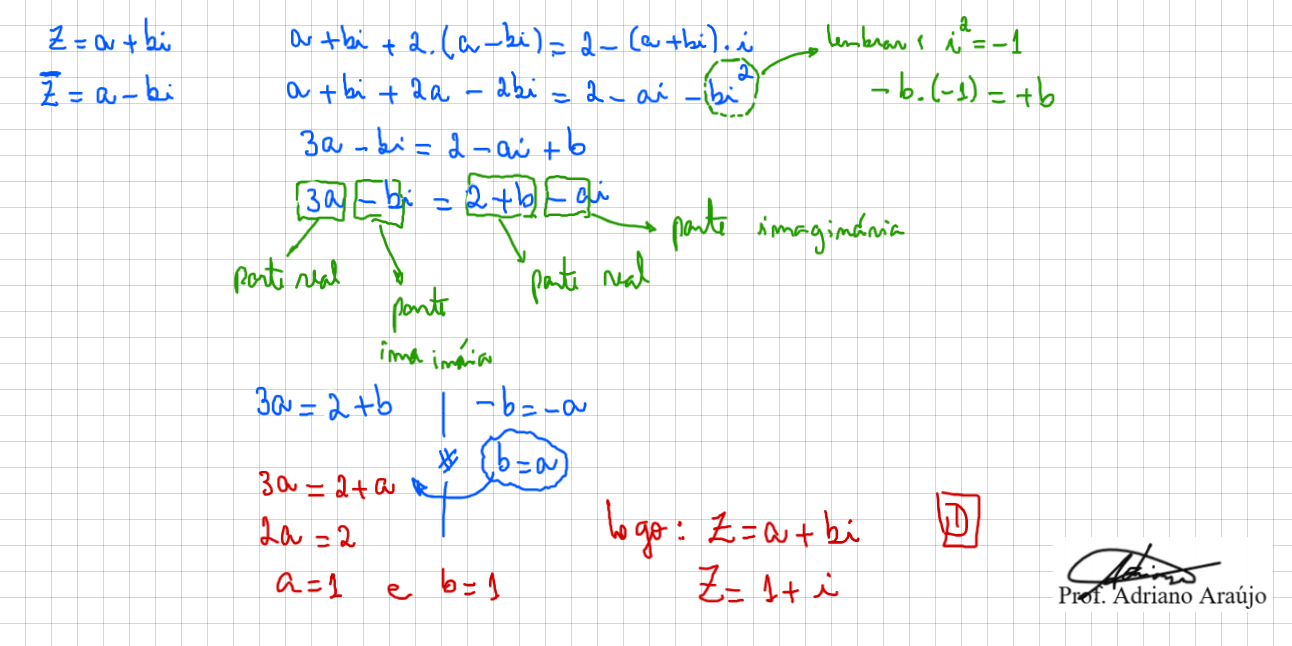 z = a + bi
z̅ = a - bi
a + bi + 2.(a - bi) = 2 - (a + bi).i
a + bi + 2a - 2bi = 2 - ai - bi²
lembrar: i² = -1
-b.(-1) = +b
3a - bi = 2 - ai + b
3a - bi = 2+b - ai
parte real
parte imaginária
parte real
parte imaginária
3a = 2 + b
-b = -a
* b = a
3a = 2 + a
2a = 2
a = 1 e b = 1
logo: z = a + bi
z = 1 + i
D
Prof. Adriano Araújo